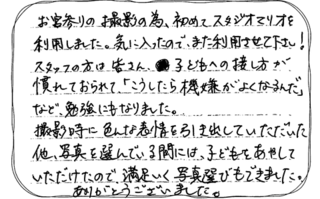 お宮参りの撮影の為、初めてスタジオマリオを
利用しました。気に入ったので、また利用させて下さい!
スタッフの方は皆さん、子どもへの接し方が
慣れておられて「こうしたら機嫌がよくなるんだ」
など、勉強にもなりました。
撮影時に色んな表情を引き出していただいた
他、写真を選んでいる間には、子どもをあやして
いただけたので、満足いく写真選びもできました。
ありがとうございました。